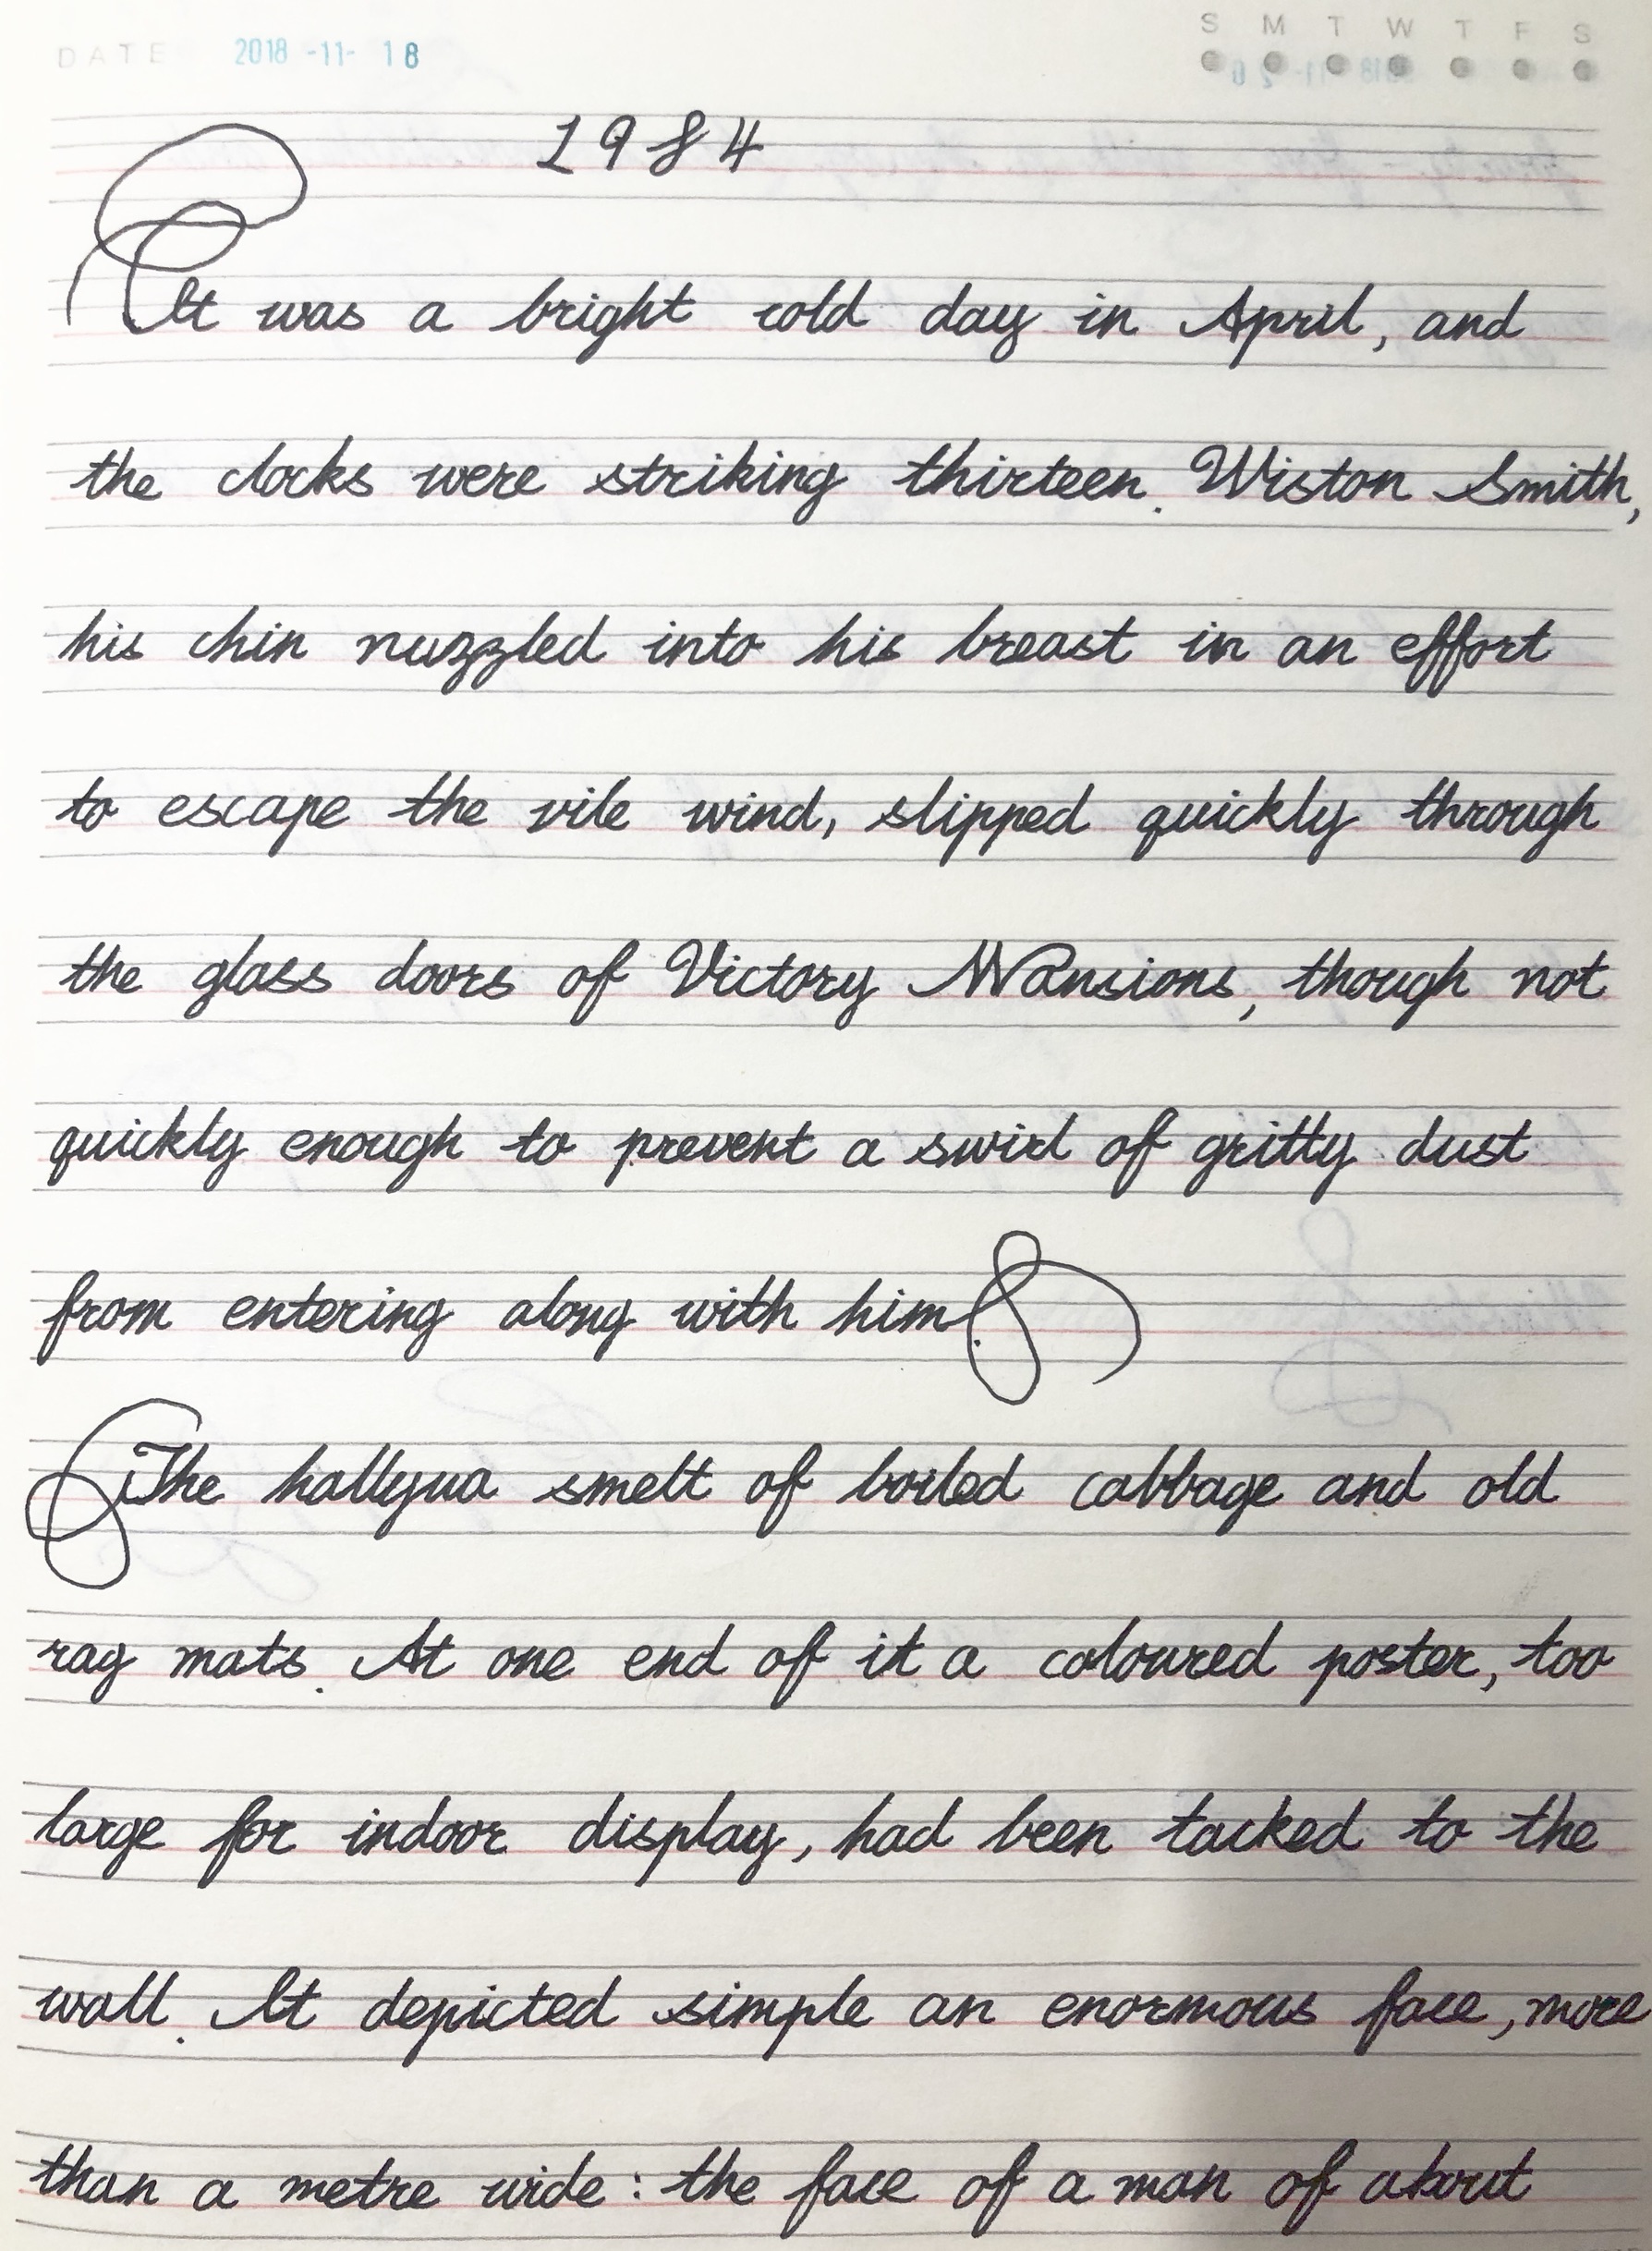 S M T W T F S
DATE 2018 -11- 18
1984
It was a bright cold day in April, and
the clocks were striking thirteen. Wiston Smith,
his chin nuzzled into his breast in an effort
to escape the vile wind, slipped quickly through
the glass doors of Victory Mansions, though not
quickly enough to prevent a swirl of gritty dust
from entering along with him.
The hallyua smelt of boiled cabbage and old
rag mats. At one end of it a coloured poster, too
large for indoor display, had been tacked to the
wall. It depicted simple an enormous face, more
than a metre wide: the face of a man of about